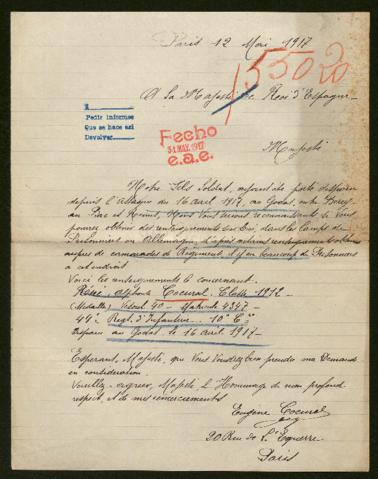 Paris 12 Mai 1917
15502
A Sa Majesté le Roi d'Espagne
Pedir informes
Que se hace así
Devolver
Fecho
31 MAY. 1917
e.a.e.
Majesté
Notre fils Soldat, a été porté disparu
depuis l'attaque du 16 avril 1917, au Godat, entre Berry
au Bac et Reims, Nous Vous serions reconnaissants si Vous
pouvez obtenir des renseignements sur lui, dans les Camps de
Prisonniers en Allemagne, d'après certains renseignements obtenus
auprès de camarades du Régiment, il y a beaucoup de Prisonniers
à cet endroit
Voici les renseignements le concernant.
Cocural, Classe 1912
(Médaille) Vesoul 90 - Matricule 4347
44e Regt d'Infanterie 10e Cie
disparu au Godat le 16 avril 1917
Espérant, Majesté, que Vous Voudrez bien prendre ma Demande
en considération.
Veuillez agréer, Majesté, l'Hommage de mon profond
respect, et de mes remerciements
Eugène Cocural
20 Rue de l'Equerre
Paris